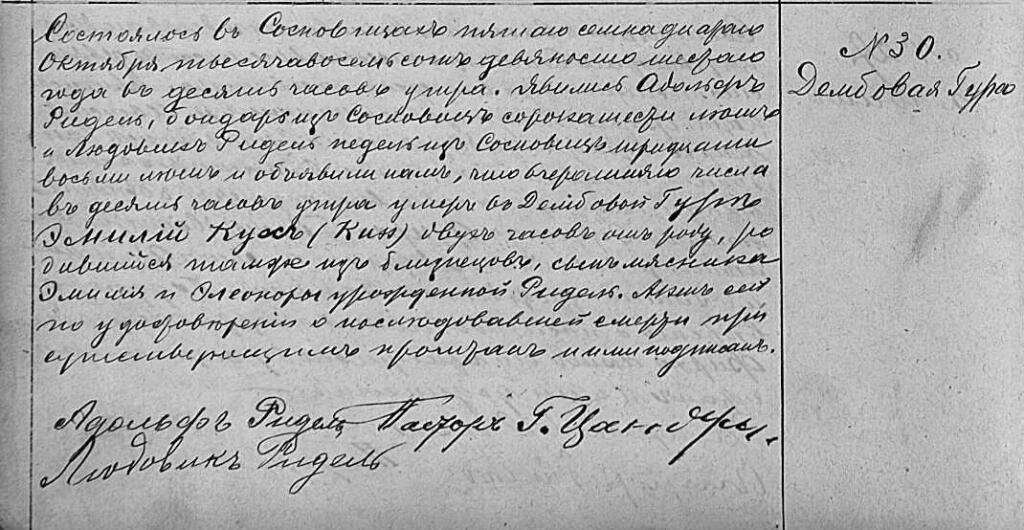 Состоялось въ Сосновицахъ пятаго семнадцатаго
Октября тысяча восемьсотъ девяносто шестаго
года въ десять часовъ утра. Явились Адольфъ
Ридель, бондарь изъ Сосновицъ сорока шести лѣтъ
и Людовикъ Ридель педель изъ Сосновицъ тридцати
восьми лѣтъ и объявили намъ, что вчерашняго числа
въ десять часовъ утра умеръ въ Дембовой Гурѣ
Эмилій Кухъ (Кин) двухъ часовъ отъ роду, ро
дившійся тамже изъ близнецовъ, сынъ мясника
Эмилія и Элеоноры урожденной Ридель. Актъ сей
по удостовѣреніи о послѣдовавшей смерти при
сутствующимъ прочитанъ и ими подписанъ.
Адольфъ Ридель Пасторъ Г. Цандеръ.
Людовикъ Ридель
N 30.
Дембовая Гура